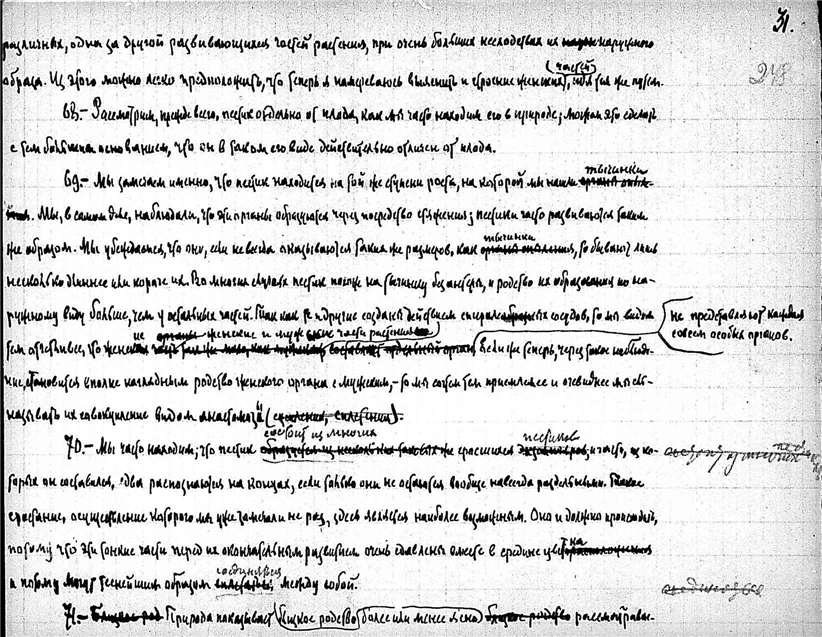 31.
249
различных, одна за другой развивающихся частей растения, при очень больших несходствах их наружного
(частей)
образа. Из этого можно легко предположить, что теперь я намереваюсь выяснить и строение женских, тем же путем.
68.— Рассмотрим, прежде всего, пестик отдельно от плода, как мы часто находим его в природе; можем это сделать
с тем большим основанием, что он в таком его виде действительно отличен от плода.
тычинки
69.— Мы замечаем именно, что пестик находится на той же ступени роста, на которой мы нашли
Мы, в самом деле, наблюдали, что эти органы образуются через посредство сжатия; пестики часто развиваются таким
тычинки
же образом. Мы убеждаемся, что они, если не всегда оказываются таких же размеров, как то бывают лишь
несколько длиннее или короче их. Во многих случаях пестик похож на тычинку без антеры, и родство их образования по на-
ружному виду больше, чем у остальных частей. Так как те и другие созданы действием спиральных сосудов, то мы видим
не представляют каждая
совсем особых органов.
женские и мужские части растения
тем отчетливее, что Если же теперь, через такое наблюде-
ние, становится вполне наглядным родство женского органа с мужским,— то мы сочтем приемлемее и очевиднее мысль
называть их совокупление видом анастомоза
состоит из многих
пестиков
70.— Мы часто находим, что пестик сросшихся и части, из ко-
торых он составился, едва распознаются на концах, если только они не остаются вообще навсегда раздельными. Такое
срастание, осуществление которого мы уже замечали не раз, здесь является наиболее возможным. Оно и должно происходить,
потому что эти тонкие части перед их окончательным развитием очень сдавлены вместе в средине цветка
соединяться
и потому могут теснейшим образом между собой.
71.— Природа показывает близкое родство более или менее ясно рассматривае-